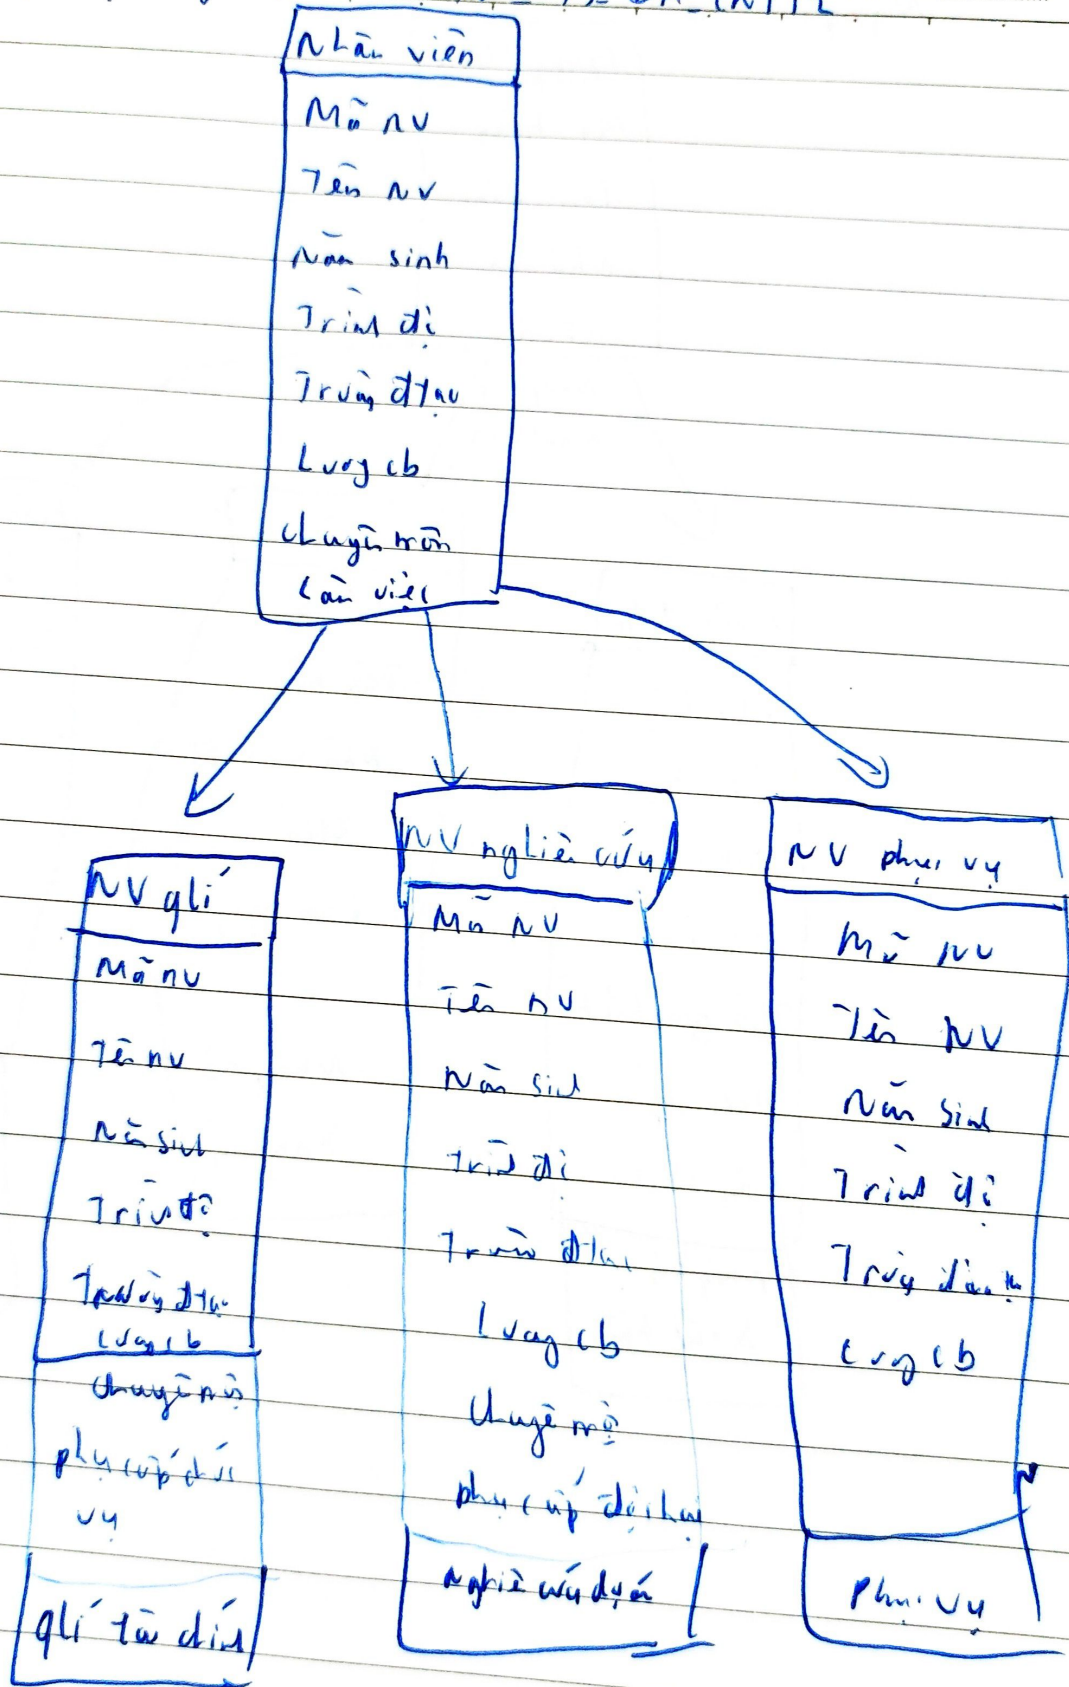 Nhân viên
Mã NV
Tên NV
Năm sinh
Trình độ
Trường đtạo
Lương cb
Chuyên môn
Làm việc
NV qlí
Mã nv
Tên nv
Năm sinh
Trình độ
Trường đtạo
Lương cb
Chuyên môn
phụ cấp chức
vụ
qlí tài chính
NV nghiên cứu
Mã NV
Tên NV
Năm sinh
Trình độ
Trường đtạo
Lương cb
Chuyên môn
phụ cấp độc hại
Nghiên cứu dự án
NV phục vụ
Mã NV
Tên NV
Năm sinh
Trình độ
Trường đào tạo
Lương cb
Phục vụ